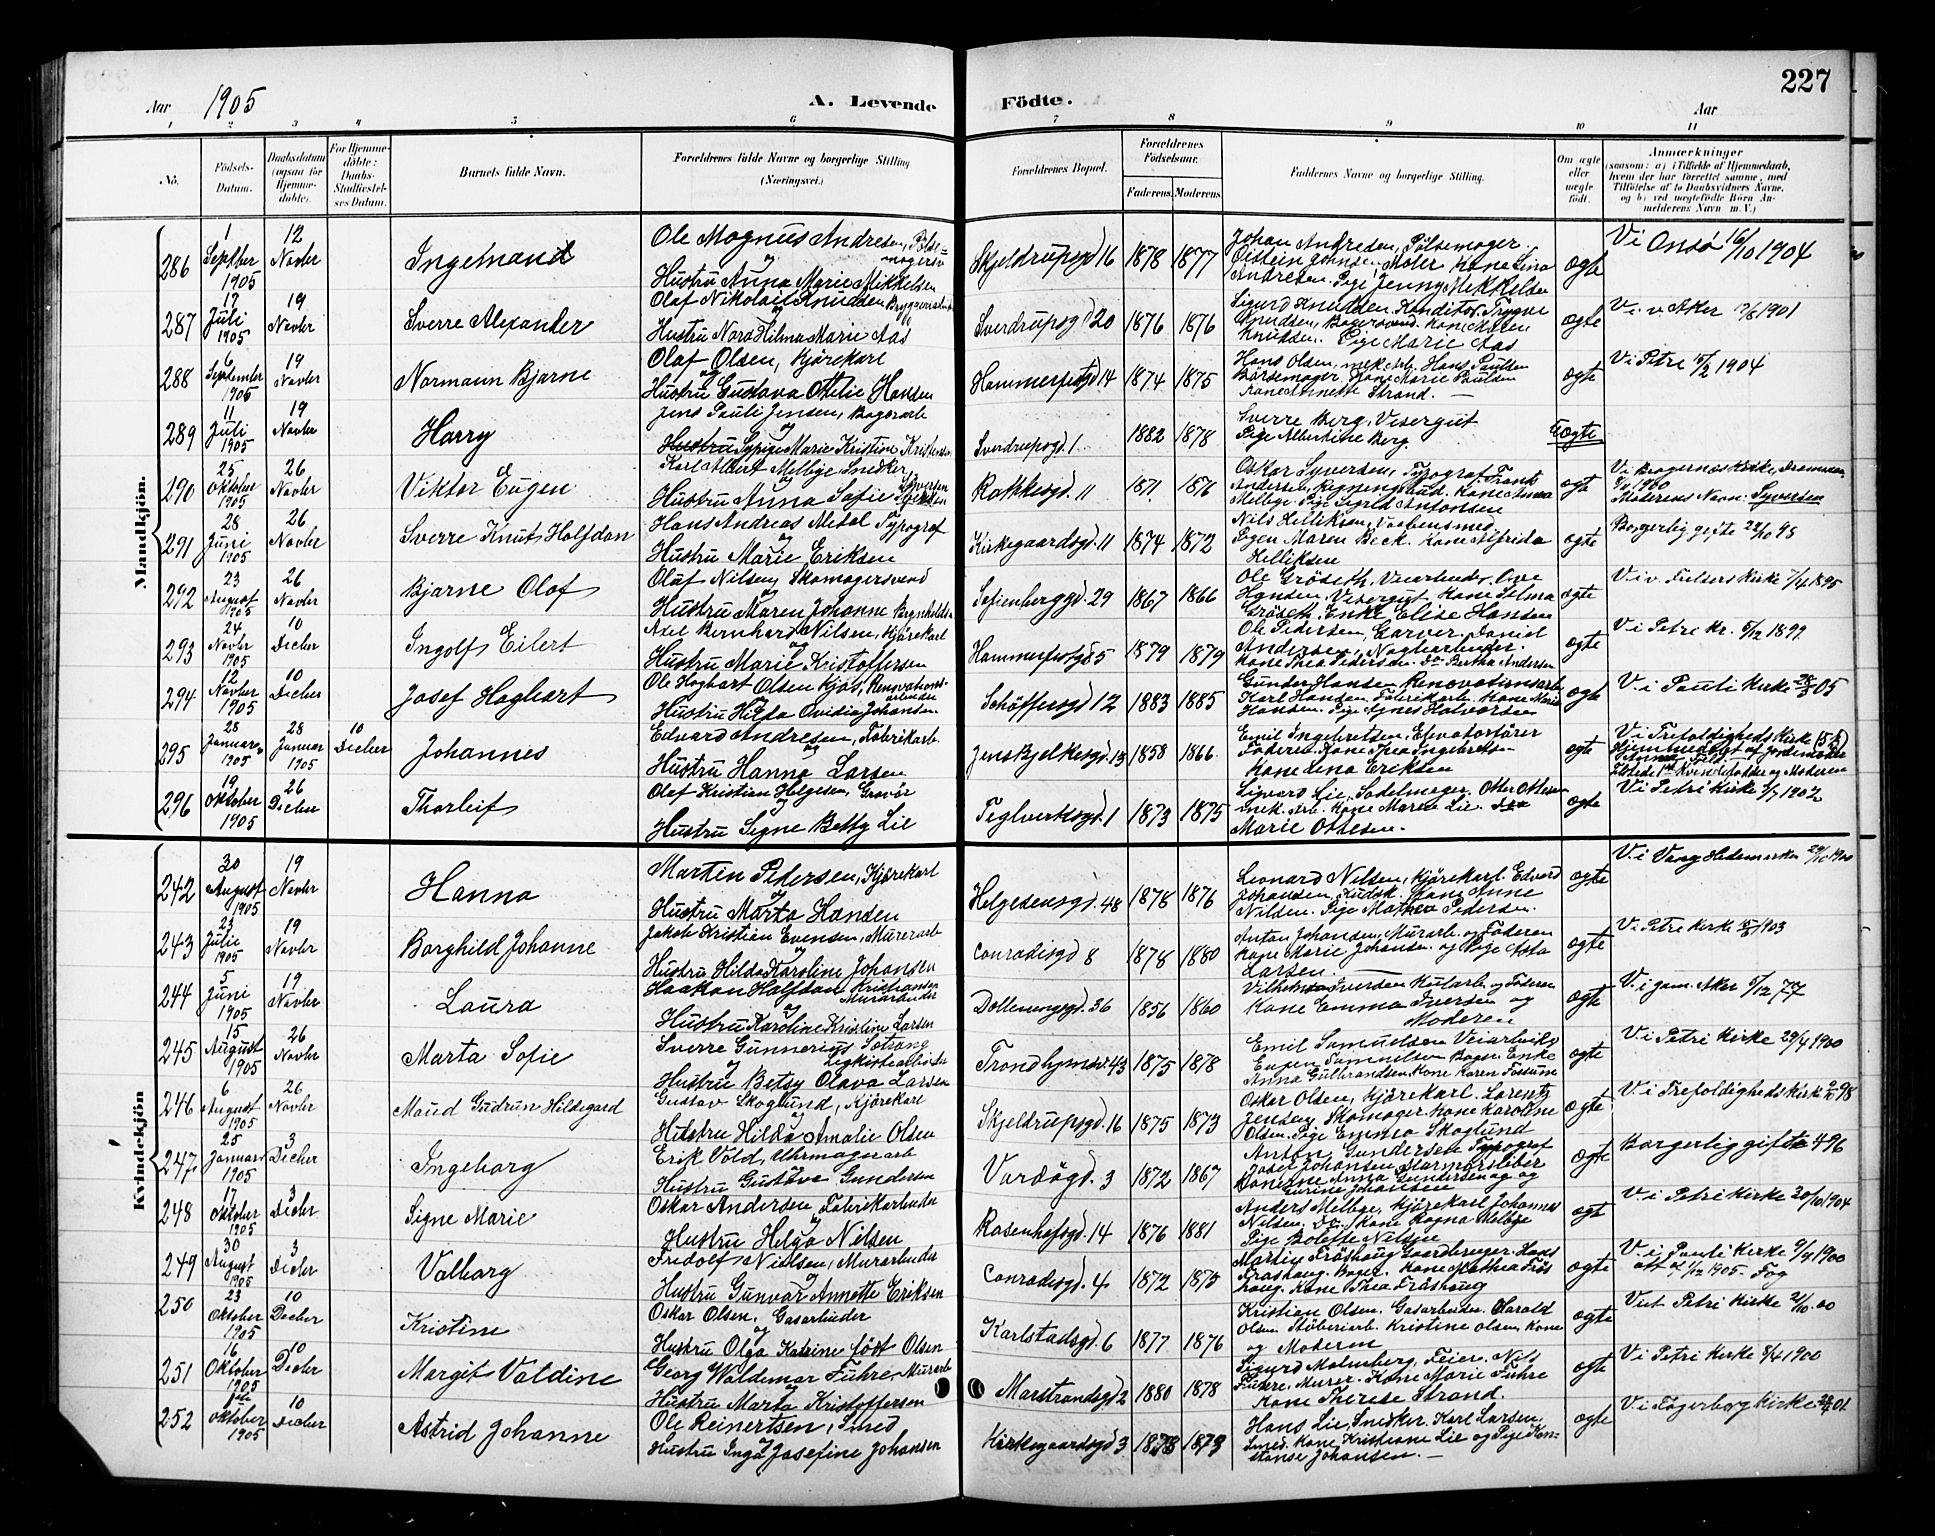 227
Aar 1905
A. Levende Födte.
Aar
1 2 3 4 5 6 7 8 9 10 11
No.
Födsels-Datum.
Daabsdatum (ogsaa for Hjemme-döbte).
For Hjemme-döbte: Daabs-Stadfæstel-ses Datum.
Barnets fulde Navn.
Forældrenes fulde Navne og borgerlige Stilling (Næringsvei.)
Forældrenes Bopæl.
Forældrenes Födselsaar.
Faderens.
Moderens.
Faddernes Navne og borgerlige Stilling.
Om ægte eller uægte födt.
Anmærkninger
(saasom: a) i Tilfælde af Hjemmedaab, hvem der har forrettet samme, med Tilföielse af to Daabsvidners Navne, og b) ved uægtefödte Börn An-melderens Navn m. V.)
Mandkjön.
286 1 Septber 1905 12 Novbr Ingemand
Ole Magnus Andresen, Pölse-magersv
og
Hustru Anna Marie Mikkelsen
Skjeldrupsgd 16 1878 1877
Johan Andresen, Pölsemager.
Öistein Johnsen, Maler Kone Lina
Andresen. Pige Jenny Mikkelsen
ægte
V i Onsö 16/10 1904
287 Juli 1905 19 Novbr Sverre Alexander
Olaf Nikolai Knudsen
Hustru Nora Hilma Marie Aas
Sverdrupsgd 20 1876 1876
Sigurd Knudsen Konditor. Trygve
Knudsen, Bagersvend. Kone Maren
Knudsen. Pige Marie Aas
ægte
V. i v Aker 1901
288 6 September 1905 19 Novbr Normann Bjarne
Olaf Olsen, Kjörekarl
og
Hustru Gustava Otilie Hansen
Hammerfestgd 14 1874 1875
Hans Olsen, mek Arb, Hans Paulsen
Börsemager, Kone Marie Paulsen
Kone Annette Strand.
ægte
V i Petri 1904
289 11 Juli 1905 19 Novbr Harry
Jens Pauli Jensen, Bagerarb
og
Hustru Sypige Marie Kristine Kristensen
Sverdrupsgd. 1 1882 1878
Sverre Berg, Visergut
Pige Albertine Berg.
Uægte
290 25 Oktober 1905 26 Novbr Viktor Eugen
Karl Albert Melbye Snedker
og
Hustru Anna Sofie Syversen
Rathkesgd. 11 1871 1876
Oskar Syversen, Typograf. Frank
Andersen, Regningsbud. Kone Anna
Melbye. Pige Sigrid Antonsen
ægte
V i Bragernæs Kirke, Drammen 1900
Moderens Navn: Syversen
291 28 Juni 1905 26 Novbr Sverre Knut Halfdan
Hans Andreas Medal Typograf
og
Hustru Marie Eriksen
Kirkegaardsgd. 11 1874 1872
Nils Helliksen, Vaabensmed
Pigen Maren Beck. Kone Alfrida
Helliksen
ægte
Borgerlig gifte 24/10 95
292 23 August 1905 26 Novbr Bjarne Olaf
Oluf Nilsen, Skomagersvend
og
Hustru Maren Johanne
Sofienberggd. 29 1867 1866
Ole Gröseth, Veiarbeider, Ove
Hansen, Visergut, Kone Selma
Gröseth, Enke Elise Hansen
ægte
V. i v. Kirke 7/4 1895
293 24 Novbr 1905 10 Dicber Ingolf Eilert
Axel Bernhard Nilsen, Kjörekarl
og
Hustru Marie Kristoffersen
Hammerfestgd 5 1879 1879
Ole Pedersen, Garver, Daniel
Andersen,
Kone Thea Pedersen. do Bertha Andersen
ægte
V. i Petri Kr. 5/12 1899
294 12 Novbr 1905 10 Dicber Josef Hagbart
Ole Hagbart Olsen Kjös, Renovations-arbeider
Hustru Hilda Ovidia Johansen
Schöffersgd 12 1883 1885
Gunder Hansen Renovationsarb
Karl Hansen, Fabrikarb. Kone Marie
Hansen. Pige Agnes Halvorsen
ægte
V. i Pauli Kirke 05
295 28 Januar 1905 28 Januar 1905 10 Dicber Johannes
Edvard Andresen, Fabrikarb.
og
Hustru Hanna Larsen
Jens Bjelkesgd. 13 1858 1866
Emil Ingebretsen, Elevatorförer
Faderen. Kone Thea Ingebretsen
Kone Lina Eriksen
ægte
V i Trefoldigheds Kirke
Hjemmedöbt af Jordemoder
296 19 Oktober 1905 26 Dicber Thorleif
Olaf Kristian Helgesen, Gravör
Hustru Signe Betty Lie
Teglverksgd. 1 1873 1875
Sigvard Lie, Sadelmager. Otter Ottesen
mek. Arb. Kone Maren Lie.
Marie Ottesen.
ægte
V i Petri Kirke
Kvindekjön
242 30 August 1905 19 Novbr Hanna
Martin Pedersen, Kjörekarl
og
Hustru Marta Hansen
Helgesensgd. 48 1878 1876
Leonard Nilsen, Kjörekarl. Edvard
Johansen, Kudsk. Kone Anne
Nilsen. Pige Mathea Pedersen.
ægte
V. i Vang Hedemarken 1900
243 23 Julie 1905 19 Novbr Borghild Johanne
Jakob Kristian Evensen, Murerarb
Hustru Hilda Karoline Johansen
Conradisgd 8 1878 1880
Anton Johansen, Murarb. og Faderen
Kone Marie Johansen. og Pige Asta
Larsen.
ægte
V. i Petri Kirke 1903
244 5 Juni 1905 19 Novbr Laura
Haakon Halfdan Kristiansen
Murarbeider
og
Hustru Karoline Kristine Larsen
Dællenenggd. 36 1856 1860
Vilhelm Iversen Kularb. og Faderen
Kone Emma Iversen og
Moderen
ægte
V. i gam. Aker 5/12 77
245 15 August 1905 26 Novbr Marta Sofie
Sverre Gunnerius
og
Hustru Betsy Olava Larsen
Trondhjemsv. 43 1875 1878
Emil Samuelsen Veiarbeid
Eugen Samuelsen Bager. Enke
Anna Gulbrandsen. Kone Karen
ægte
V. i Petri Kirke 29/4 1900
246 6 August 1905 26 Novbr Maud Gudrun Hildegard
Gustav Skoglund, Kjörekarl
og
Hustru Hilda Amalie Olsen
Skjeldrupsgd. 16 1875 1873
Oskar Olsen, Kjörekarl. Lorentz
Jensen, Skomager. Kone Karoline
Olsen. Pige Emma Skoglund
ægte
V. i Trefoldigheds Kirke 98
247 25 Januar 1905 3 Dicber Ingeborg
Erik Vold, Uhrmagerarb
og
Hustru Gustava Gundersen
Vardögd. 3 1872 1867
Anton Gundersen Typograf
Josef Johansen, Marmorsliber
Konerne Anna Gundersen og
Johansen
ægte
Borgerlig gifte 96
248 17 Oktober 1905 3 Dicber Signe Marie
Oskar Andersen, Fabrikarbeider
og
Hustru Helga Nilsen
Rosenhofsgd. 14 1876 1881
Anders Melbye, Kjörekarl Johannes
Nilsen, do. Kone Ragna Melbye
Pige Bolette Nilsen
ægte
V. i Petri Kirke 30/10 1904
249 30 August 1905 3 Dicber Valborg
Fridolf Nielsen, Murarbeider
og
Hustru Gunvar Annette Eriksen
Conradisgd. 4 1872 1875
Martin Fröshaug Gaardbruger. Hans
Fröshaug. Bager. Kone Mathea Frös
haug. Kone Thea Fröshaug
ægte
V. i Pauli Kirke 1900
att 1/12 1905. Fog
250 23 Oktober 1905 10 Dicber Kristine
Oskar Olsen, Gasarbeider
og
Hustru Olga Katrine födt Olsen
Karlstadsgd. 6 1877 1876
Kristian Olsen. Gasarbeider. Harald
Olsen Stöberiarb. Kristine Olsen, Kone
og Moderen
ægte
V. i St. Petri Kirke 21/10. 00
251 16 Oktober 1905 10 Dicber Margit Valdine
Georg Waldemar Fuhre, Murarb
og
Hustru Marta Kristoffersen
Marstrandsgd 2 1880 1878
Sigurd Malmberg, Feier. Nils
Fuhre, Murer. Kone Marie Fuhre
Kone Therese Strand.
ægte
V. i Petri Kirke 8/4 1900
252 Oktober 1905 10 Dicber Astrid Johanne
Ole Reinertsen, Smed
og
Hustru Inga Josefine Johansen
Kirkegaardsgd 3 1878 1873
Hans Lie, Snedker. Karl Larsen,
Smed. Kone Kristiane Lie og Pige Kon-
stanse Johansen.
ægte
V. i Fagerborg Kirke 01